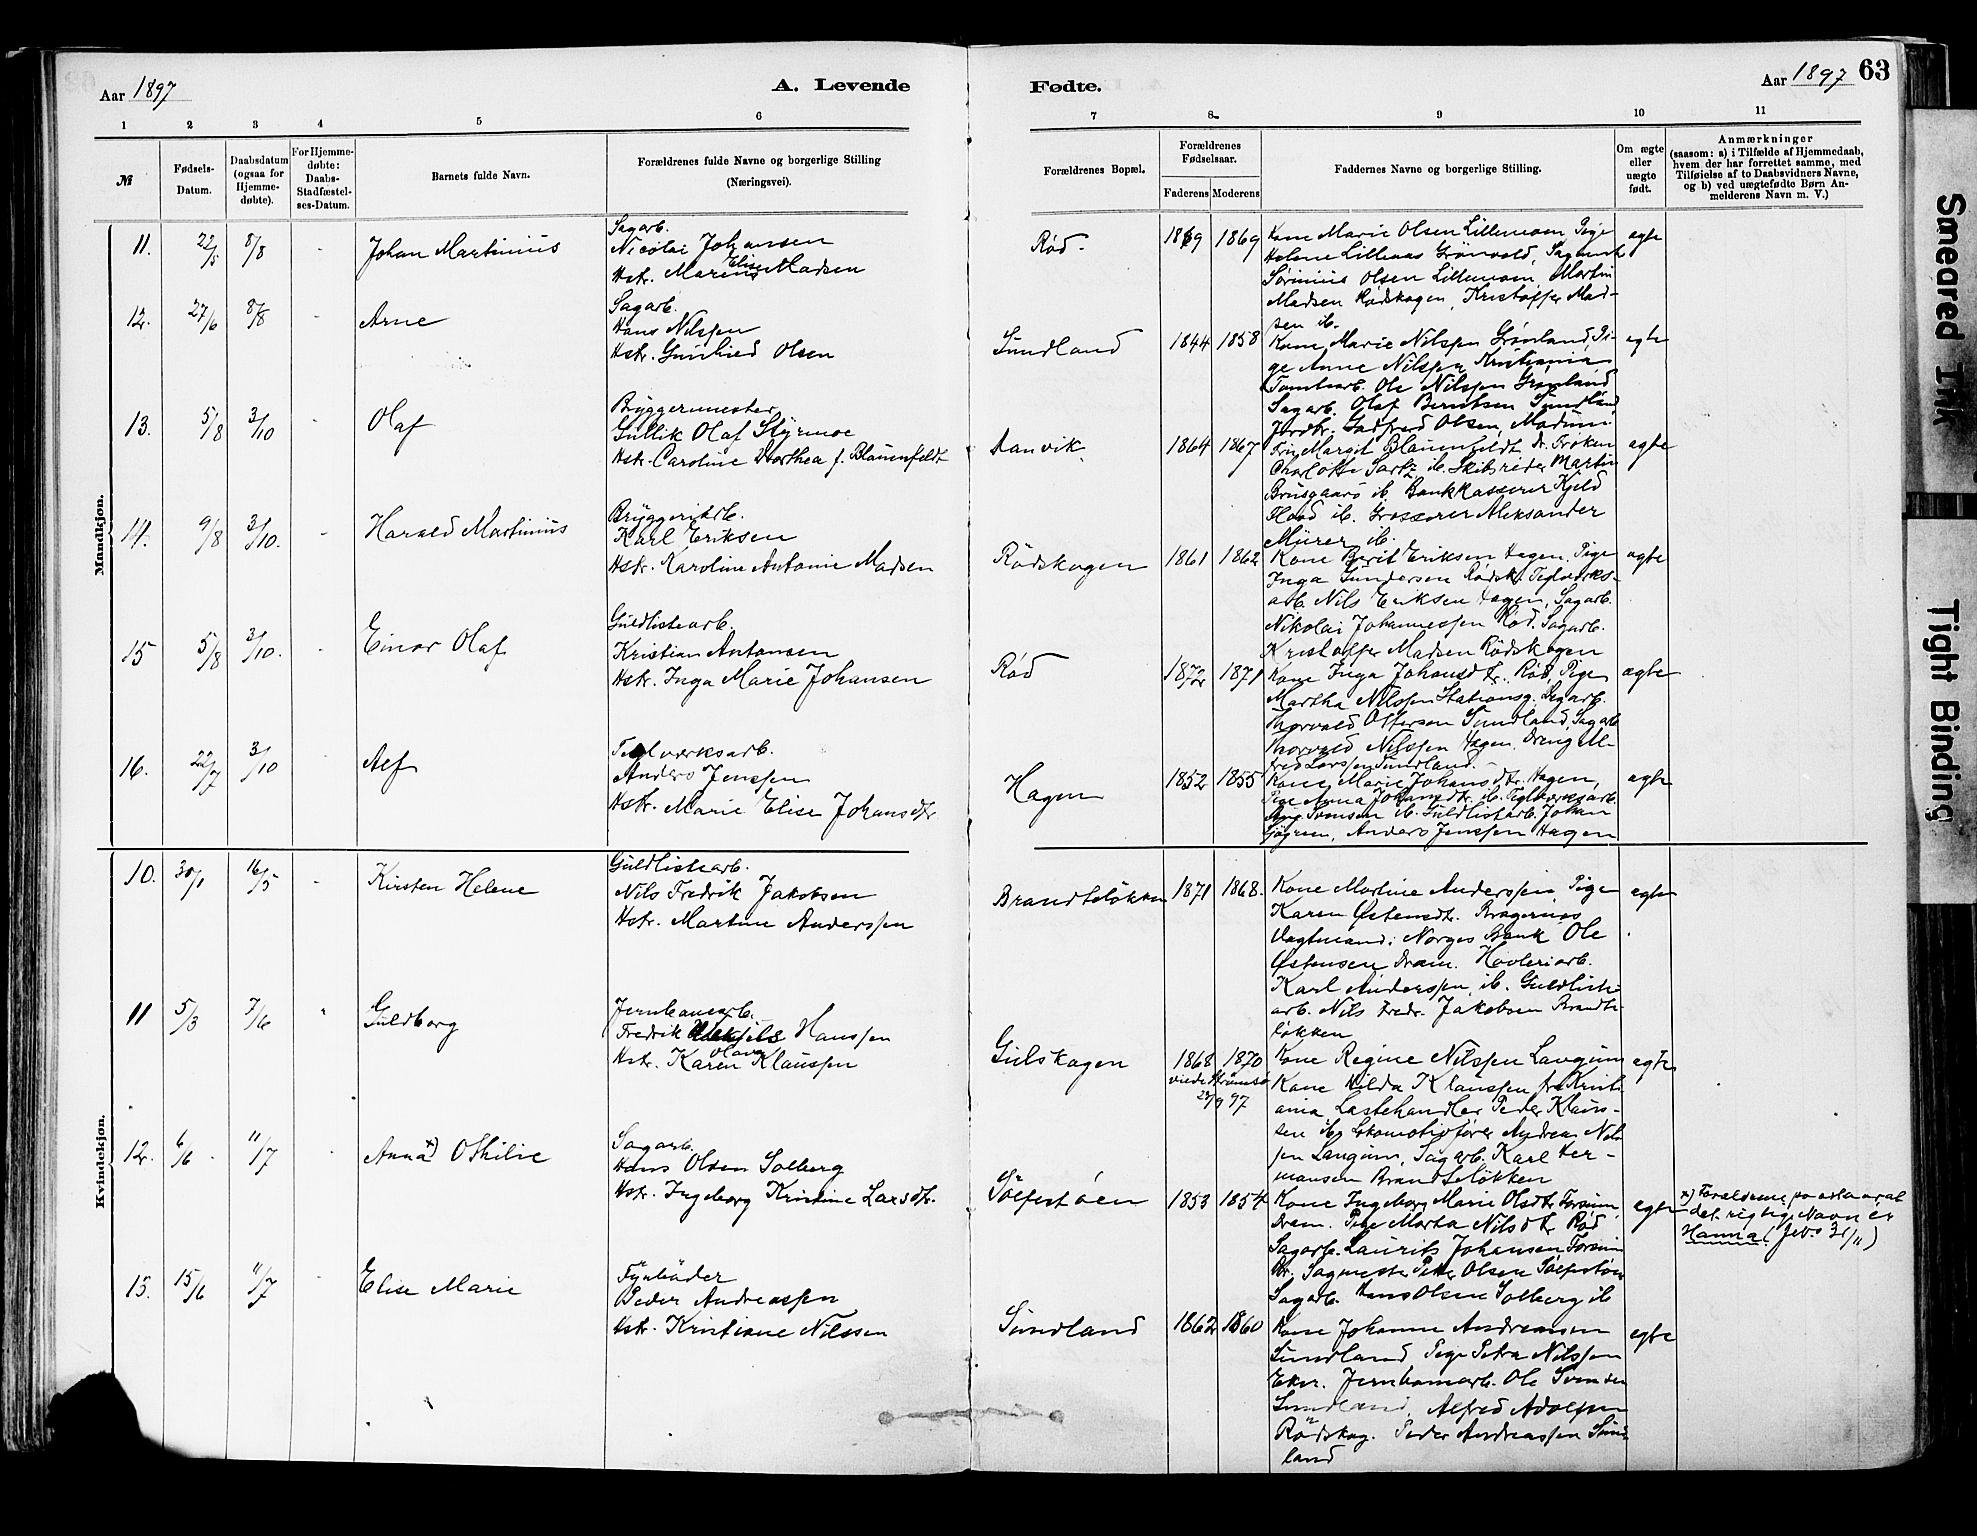 Aar 1897
A. Levende
Fødte.
Aar 1897
63
1 2 3 4 5 6 7 8 9 10 11
№
Fødsels-
Datum.
Daabsdatum
(ogsaa for
Hjemme-
døbte).
For Hjemme-
døbte:
Daabs-
Stadfæstel-
ses-Datum.
Barnets fulde Navn.
Forældrenes fulde Navne og borgerlige Stilling
(Næringsvei).
Forældrenes Bopæl.
Forældrenes
Fødselsaar.
Faderens Moderens
Faddernes Navne og borgerlige Stilling.
Om ægte
eller
uægte
født.
Anmærkninger
(saasom: a) i Tilfælde af Hjemmedaab,
hvem der har forrettet samme, med
Tilføielse af to Daabsvidners Navne,
og b) ved uægtefødte Børn An-
melderens Navn m. V.)
Mandkjøn.
11. 22/5 8/8 - Johan Martinius
Sagarb.
Nicolai Johansen
Elise
Hstr. Marens Madsen
Rød. 1869 1869
Kone Marie Olsen Lillemoen Pige
Helene Lillenas Grønvold, Sagmest
Sørinius Olsen Lillemoen, Martin
Madsen Rødskogen, Kristoffer Mad-
sen ib.
egte
12. 27/6 8/8 - Arne
Sagarb.
Hans Nilssen
Hstr. Gunhied Olsen
Sundland 1844 1858
Kone Marie Nilssen Grønland, Pi-
ge Anne Nilssen Kristiania
Tomtearb. Ole Nilssen Grønland
Sagarb. Olaf Berntsen Sundland
Jordbr. Godfred Olsen, Modum
egte
13. 5/8 3/10 - Olaf
Byggermester
Gullik Olaf Styrmoe
Hstr. Caroline Dorthea f. Blauenfeldt
Aanvik 1864 1867
Fru Margit Blauenfeldt Dr. Frøken
Charlotte Sartz ib. Skibsreder Martin
Brusgaard ib. Bankkasserer Kjeld
Flood ib. Grosserer Aleksander
Mürer ib.
egte
14. 9/8 3/10. - Harald Martinius
Bryggeriarb.
Karl Eriksen
Hstr. Karoline Antonie Madsen
Rødskogen 1861 1862
Kone Berit Eriksen Hagen, Pige
Inga Gundersen Rødsk. Teglverks-
arb. Nils Eriksen Hagen, Sagarb.
Nikolai Johannessen Rød. Sagarb.
Kristoffer Madsen Rødskogen
egte
15 5/8 3/10. - Einar Olaf
Guldlistearb.
Kristian Antonsen
Hstr. Inga Marie Johansen
Rød 1872 1871
Kone Inga Johansdtr. Rød, Pige
Martha Nilssen Stationsg. Sagarb.
Thorvald Ottersen Sundland, Sagarb
Thorvald Nilssen Hagen. Dreng Al-
fred Larssen Sundland.
egte
16. 22/7 3/10 Alf
Teglværksarb.
Anders Jenssen
Hstr. Marie Elise Johansdtr
Hagen 1852 1855
Kone Marie Johansdtr. Hagen,
Pige Anna Johansdtr. ib. Teglverksarb.
Aug. Svensen ib. Guldlistarb. Johan
Sjøgren, Anders Jenssen Hagen
egte
Kvindekjøn.
10. 30/1 16/5 - Kirsten Helene
Guldlistearb.
Nils Fredrik Jakobsen
Hstr. Martine Anderssen
Brandtsløkken 1871 1868.
Kone Martine Anderssen, Pige
Karen Østensdtr. Bragernæs
Vagtmand i Norges Bank Ole
Østensen Dram. Høvleriarb.
Karl Anderssen, ib. Guldliste
arb. Nils Fredr. Jakobsen Brandts-
løkken
egte
11 5/3 7/6 - Guldborg
Jernbanearb.
Fredrik Hanssen
Olava
Hstr. Karen Klaussen
Gulskogen 1868 1870
viede Strømsø
29/9 97
Kone Regine Nilssen Langum
Kone Hilda Klaussen fra Kristi
ania, Lastehandler Peder Klaus-
sen ib. Lokomotivfører Andreas Nils
sen Langum, Sagarb. Karl Her-
mansen Brandtsløkken
egte
12. 6/6 11/7 - Anna x) Othilie
Sagarb.
Hans Olsen Solberg
Hstr. Ingeborg Kristine Larsdtr.
Sølfestøen 1853 1854
Kone Ingeborg Marie Olsdtr Forsum
Dram. Pige Marta Nilsdtr. Rød
Sagarb. Laurits Johansen Forsum
Dr. Sagmester Peter Olsen Sølfestøen
Sagarb. Hans Olsen Solberg ib
egte
x) Forældrene paastaar at
det rigtige Navn er
Hanna!
13. 15/6 11/7 - Elise Marie
Fyrbøder
Peder Andreassen
Hstr. Kristiane Nilssen
Sundland 1862 1860
Kone Johanne Andreassen
Sundland, Pige Petra Nilssen
Eker. Jernbanearb. Ole Svensen
Sundland, Alfred Adolfsen
Rødskog. Peder Andreassen Sund
land
egte
Smeared Ink
Tight Binding